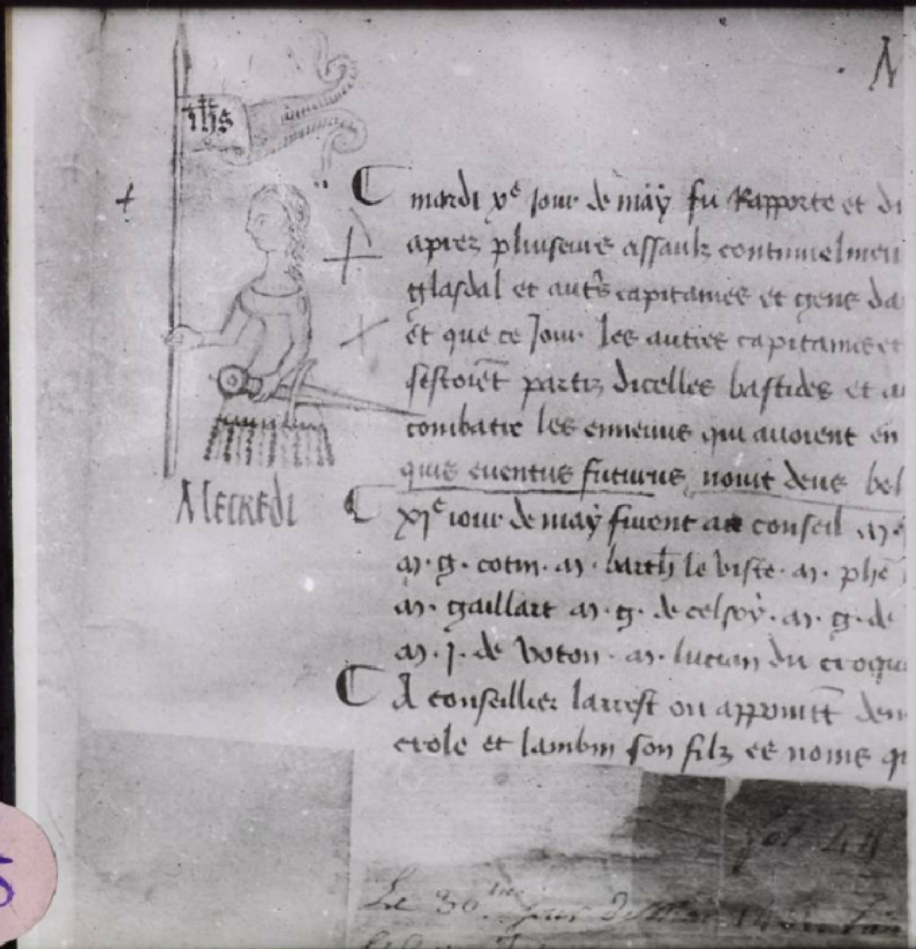 ihs
mardi xe jour de may fu Rapporte et di
apres pluseurs assaulz continuelmen
glasdal et autrs capitaines et gens da
et que ce jour les autres capitaines et
sestoient partiz dicelles bastides et a
combatre les ennemis qui avoient en
quis eventus futurus novit deus bel
Mecredi
xie jour de may furent au conseil m e
m. g. cotin. m. barth le viste. m. phe
m. gaillart m. g. de celsoy. m. g. de
m. j. de voton. m. lucian du croqu
A conseillier larrest ou appoinct den
crole et lambin son filz es noms q
Le 30 jour